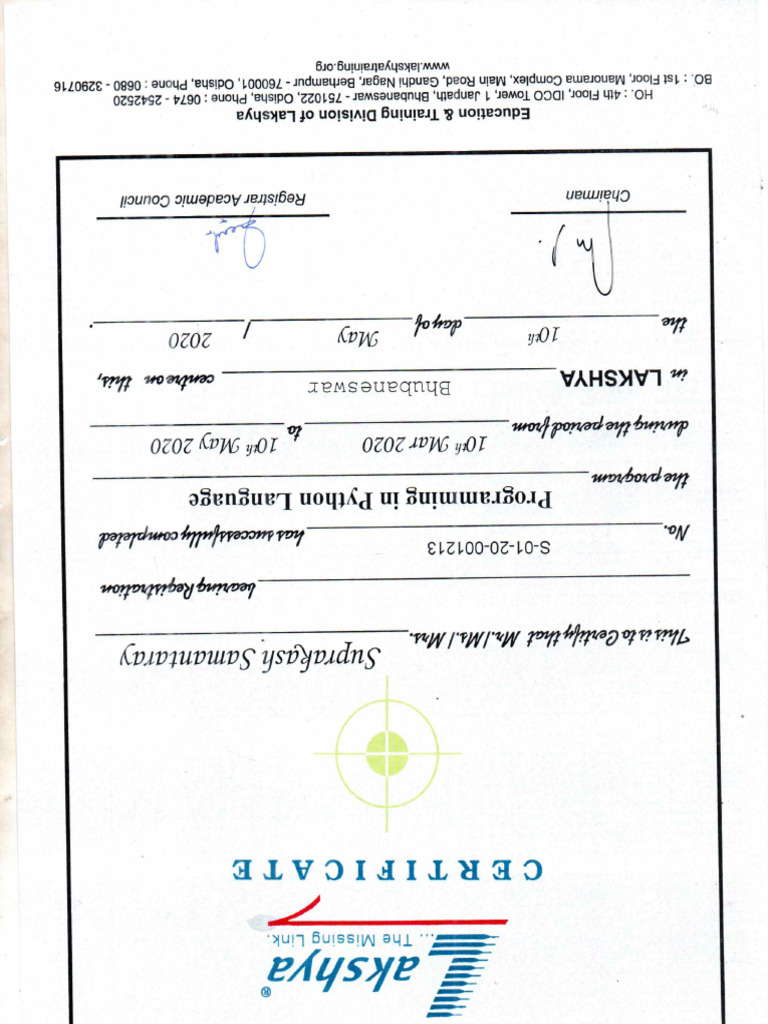 Lakshya®
... The Missing Link.
CERTIFICATE
This is to Certify that Mr. / Ms. / Mrs. Suprakash Samantaray
bearing Registration
No. S-01-20-001213 has successfully completed
the program Programming in Python Language
during the period from 10th Mar 2020 to 10th May 2020
in LAKSHYA Bhubaneswar centre on this,
the 10th day of May / 2020 .
Chairman Registrar Academic Council
Education & Training Division of Lakshya
HO. : 4th Floor, IDCO Tower, 1 Janpath, Bhubaneswar - 751022, Odisha, Phone : 0674 - 2542520
BO. : 1st Floor, Manorama Complex, Main Road, Gandhi Nagar, Berhampur - 760001, Odisha, Phone : 0680 - 3290716
www.lakshyatraining.org